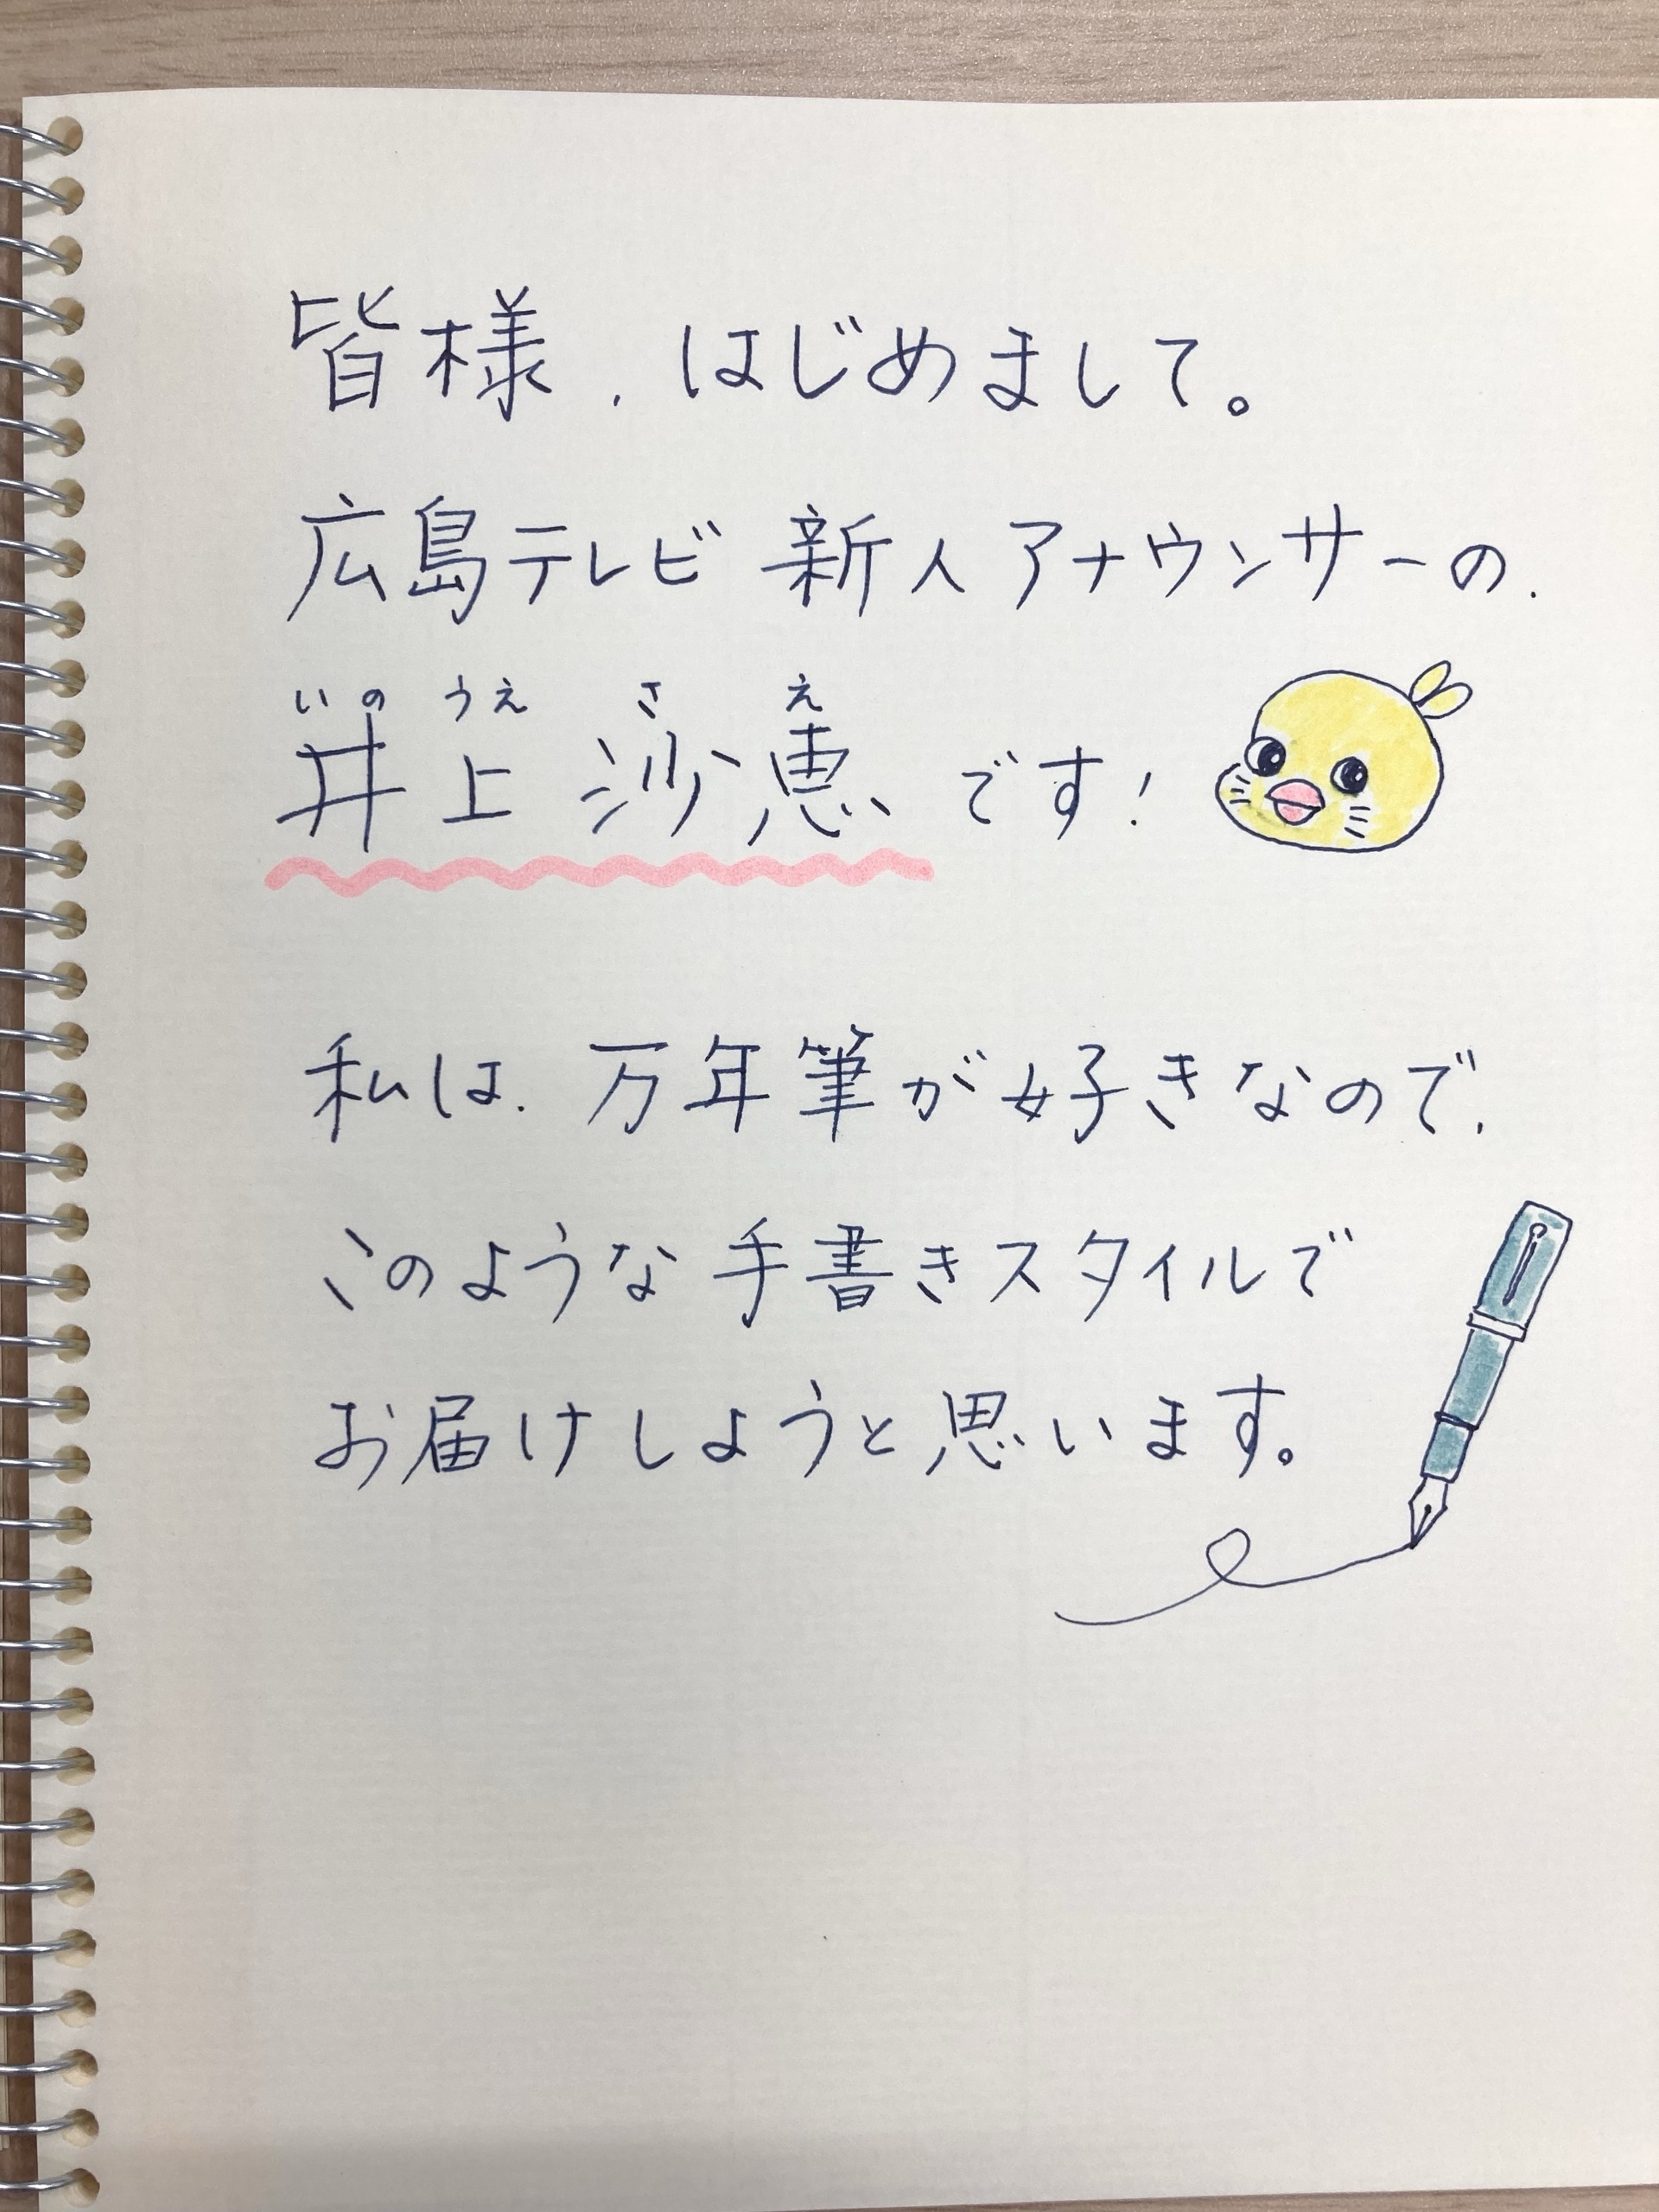 皆様、はじめまして。
広島テレビ 新人アナウンサーの、
いのうえ さえ
井上 沙恵 です!
私は、万年筆が好きなので、
このような手書きスタイルで
お届けしようと思います。